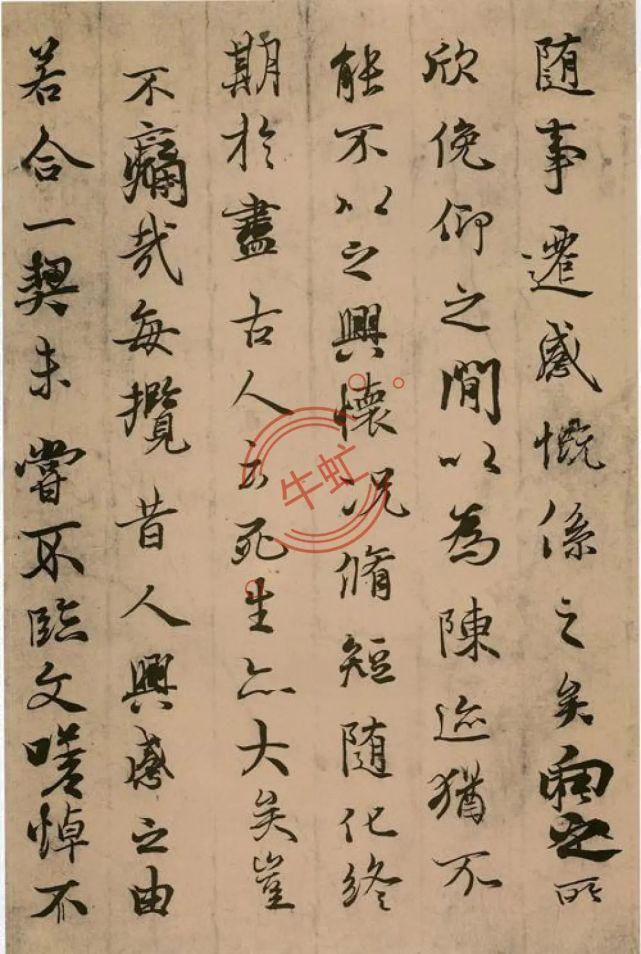 随事遷感慨係之矣向之所
欣俛仰之間以為陳迹猶不
能不以之興懷況脩短隨化終
期於盡古人云死生亦大矣豈
不痛哉每攬昔人興感之由
若合一契未嘗不臨文嗟悼不
牛虻